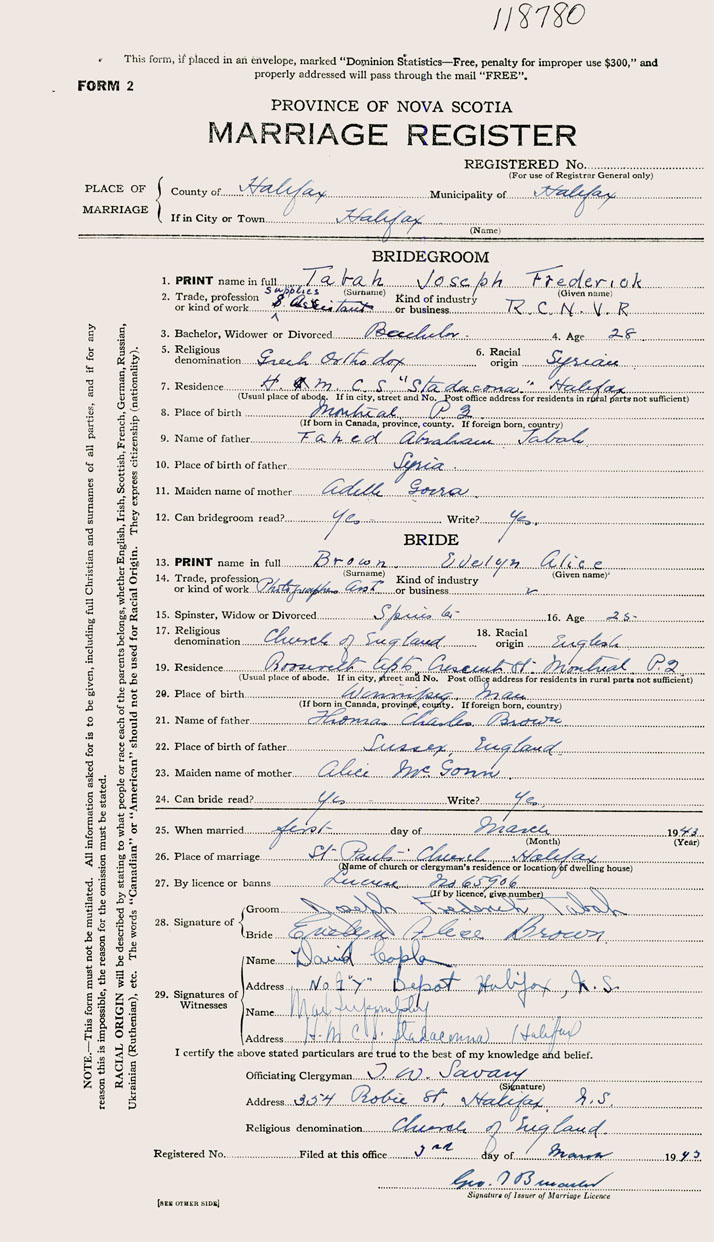 118780
This form, if placed in an envelope, marked "Dominion Statistics—Free, penalty for improper use $300," and
properly addressed will pass through the mail "FREE".
FORM 2
PROVINCE OF NOVA SCOTIA
MARRIAGE REGISTER
REGISTERED No.
(For use of Registrar General only)
PLACE OF MARRIAGE
County of Halifax Municipality of Halifax
If in City or Town Halifax
(Name)
BRIDEGROOM
1. PRINT name in full Tabah Joseph Frederick
(Surname) (Given name)
2. Trade, profession or kind of work Supplies Assistant Kind of industry or business R.C.N.V.R
3. Bachelor, Widower or Divorced Bachelor 4. Age 28
5. Religious denomination Greek Orthodox 6. Racial origin Syrian
7. Residence H.M.C.S "Stadacona" Halifax
(Usual place of abode. If in city, street and No. Post office address for residents in rural parts not sufficient)
8. Place of birth Montreal P.Q
(If born in Canada, province, county. If foreign born, country)
9. Name of father Fahed Abraham Tabah
10. Place of birth of father Syria
11. Maiden name of mother Adelle
12. Can bridegroom read? Yes Write? Yes.
BRIDE
13. PRINT name in full Brown Evelyn Alice
(Surname) (Given name)
14. Trade, profession or kind of work Photographers Asst Kind of industry or business
15. Spinster, Widow or Divorced Spinster 16. Age 25
17. Religious denomination Church of England 18. Racial origin English
19. Residence Roosevelt Apts, Crescent St. Montreal P.Q
(Usual place of abode. If in city, street and No. Post office address for residents in rural parts not sufficient)
20. Place of birth Winnipeg, Man
(If born in Canada, province, county. If foreign born, country)
21. Name of father Thomas Charles Brown
22. Place of birth of father Sussex, England
23. Maiden name of mother Alice
24. Can bride read? Yes Write? Yes.
25. When married first day of March 1943
(Month) (Year)
26. Place of marriage St Pauls Church Halifax
(Name of church or clergyman's residence or location of dwelling house)
27. By licence or banns Licence No 65906
(If by licence, give number)
28. Signature of
Groom Joseph Frederick Tabah
Bride Evelyn Alice Brown
29. Signatures of Witnesses
Name David
Address No 1 "Y" Depot Halifax, N.S.
Name
Address H.M.C.S. Stadacona Halifax
I certify the above stated particulars are true to the best of my knowledge and belief.
Officiating Clergyman T. W. Savary
(Signature)
Address 354 Robie St. Halifax, N.S.
Religious denomination Church of England
Registered No. Filed at this office 3rd day of March 1943
Geo.
Signature of Issuer of Marriage Licence
[SEE OTHER SIDE]
NOTE.—This form must not be mutilated. All information asked for is to be given, including full Christian and surnames of all parties, and if for any
reason this is impossible, the reason for the omission must be stated.
RACIAL ORIGIN will be described by stating to what people or race each of the parents belongs, whether English, Irish, Scottish, French, German, Russian,
Ukrainian (Ruthenian), etc. The words "Canadian" or "American" should not be used for Racial Origin. They express citizenship (nationality).